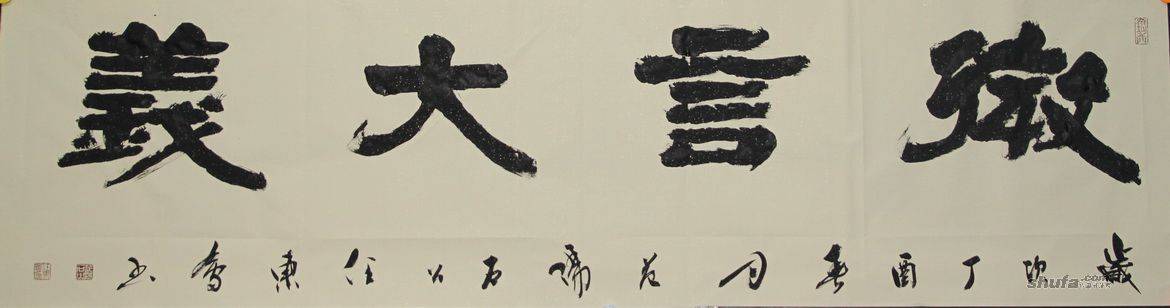 微言大義
歲次丁酉春月於 石 任東 書
shufa.com